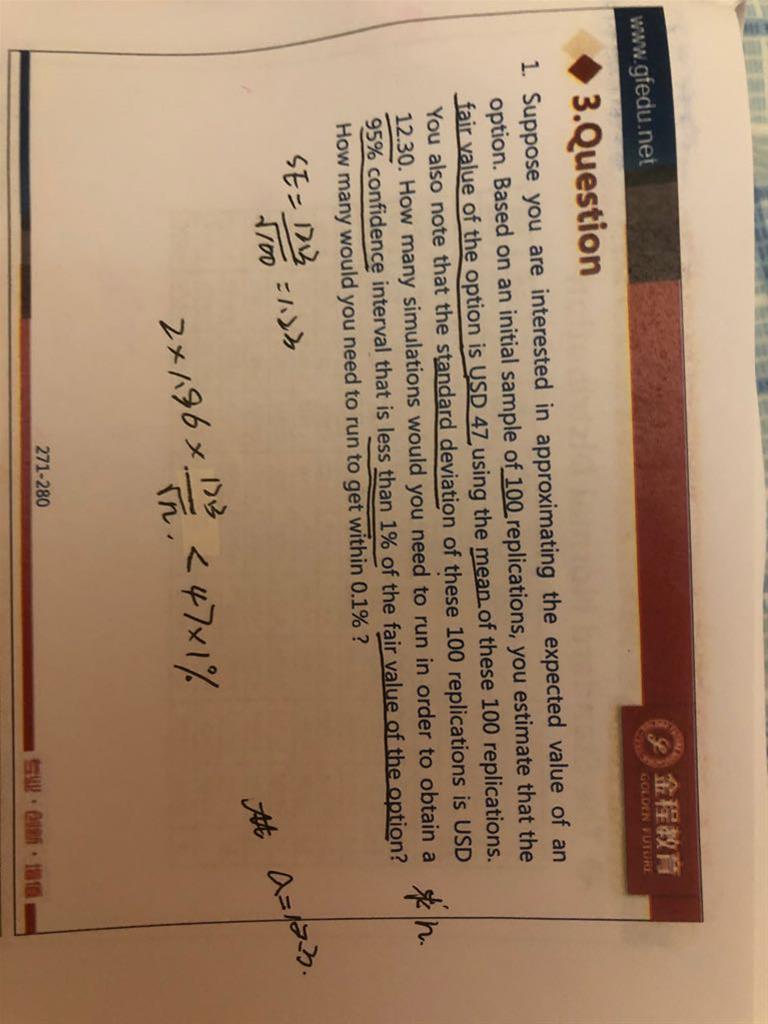 www.gfedu.net
金程教育
GOLDEN FUTURE
3.Question
1. Suppose you are interested in approximating the expected value of an
option. Based on an initial sample of 100 replications, you estimate that the
fair value of the option is USD 47 using the mean of these 100 replications.
You also note that the standard deviation of these 100 replications is USD
12.30. How many simulations would you need to run in order to obtain a
95% confidence interval that is less than 1% of the fair value of the option?
How many would you need to run to get within 0.1% ?
求 n.
SE = 12.3/√100 = 1.23
2×1.96× 12.3/√n < 47×1%
271-280
专业·创新·增值